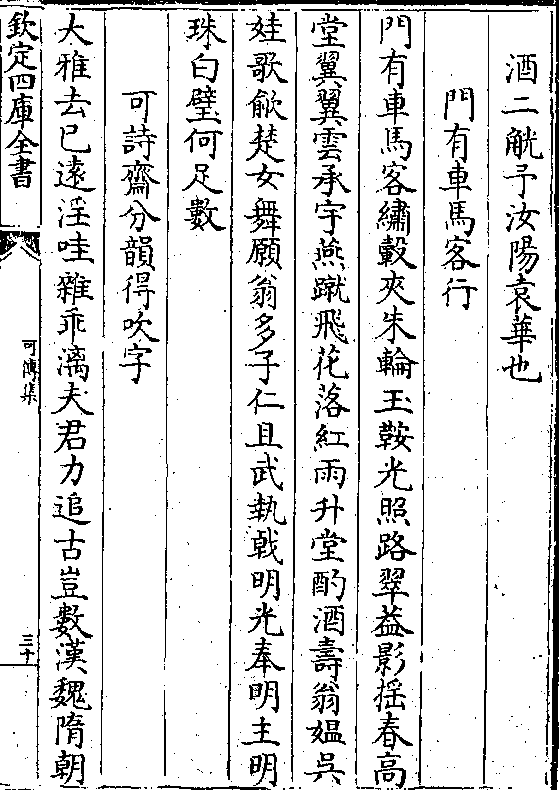 酒二觥予汝陽袁華也
門有車馬客行
門有車馬客繡轂夾朱輪玉鞍光照路翠葢影揺春高
堂翼翼雲承宇燕蹴飛花落紅雨升堂酌酒壽翁媪吳
娃歌歈楚女舞願翁多子仁且武執㦸明光奉明主明
珠白璧何足數
可詩齋分韻得吹字
大雅去已逺淫哇雜乖漓夫君力追古豈數漢魏隋朝
欽定四庫全書
可傳集
三十